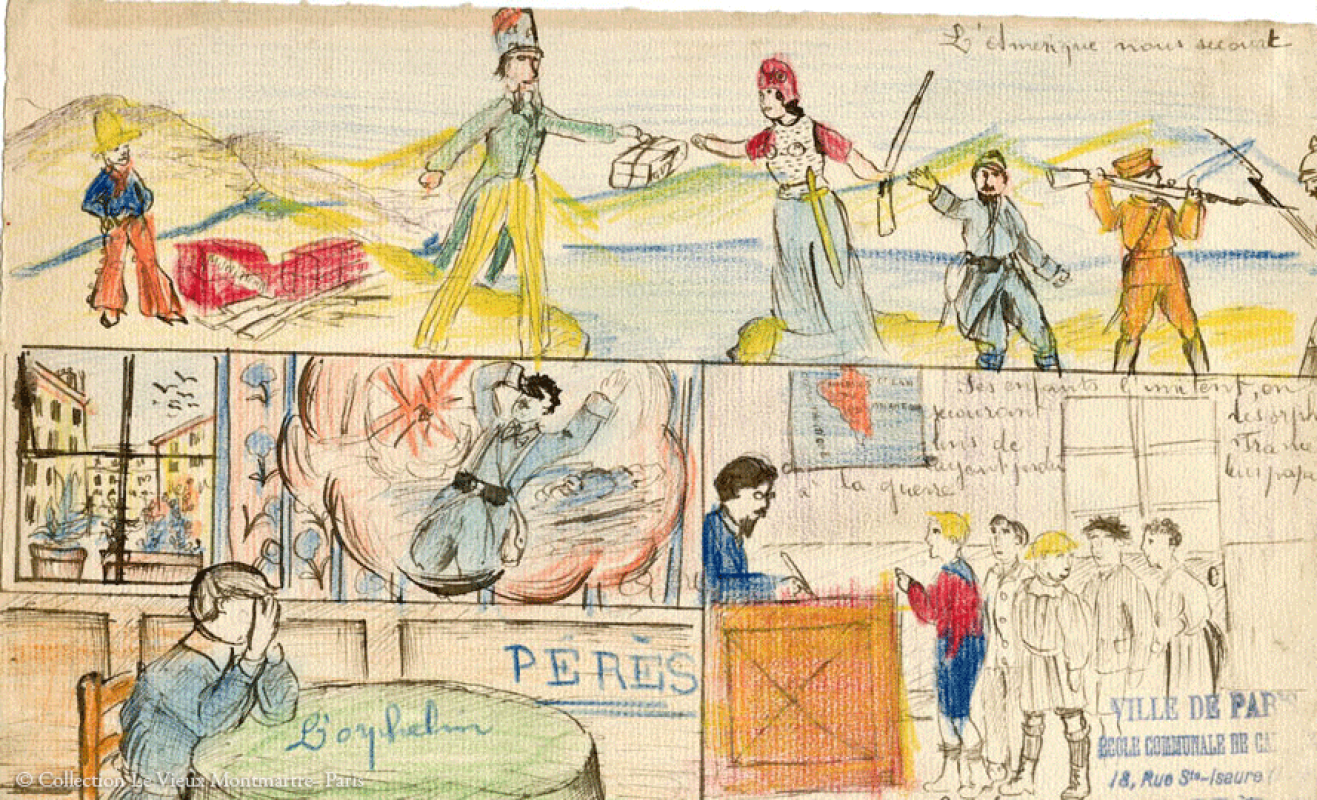 L'Amérique nous secourt
Ses enfants l'imitent, en
secourant les orph
lins de Franc
ayant perdu leur papa
à la guerre
PÉRÈS
L'orphelin
VILLE DE PARIS
ÉCOLE COMMUNALE DE
18, Rue Ste-Isaure
© Collection Le Vieux Montmartre- Paris